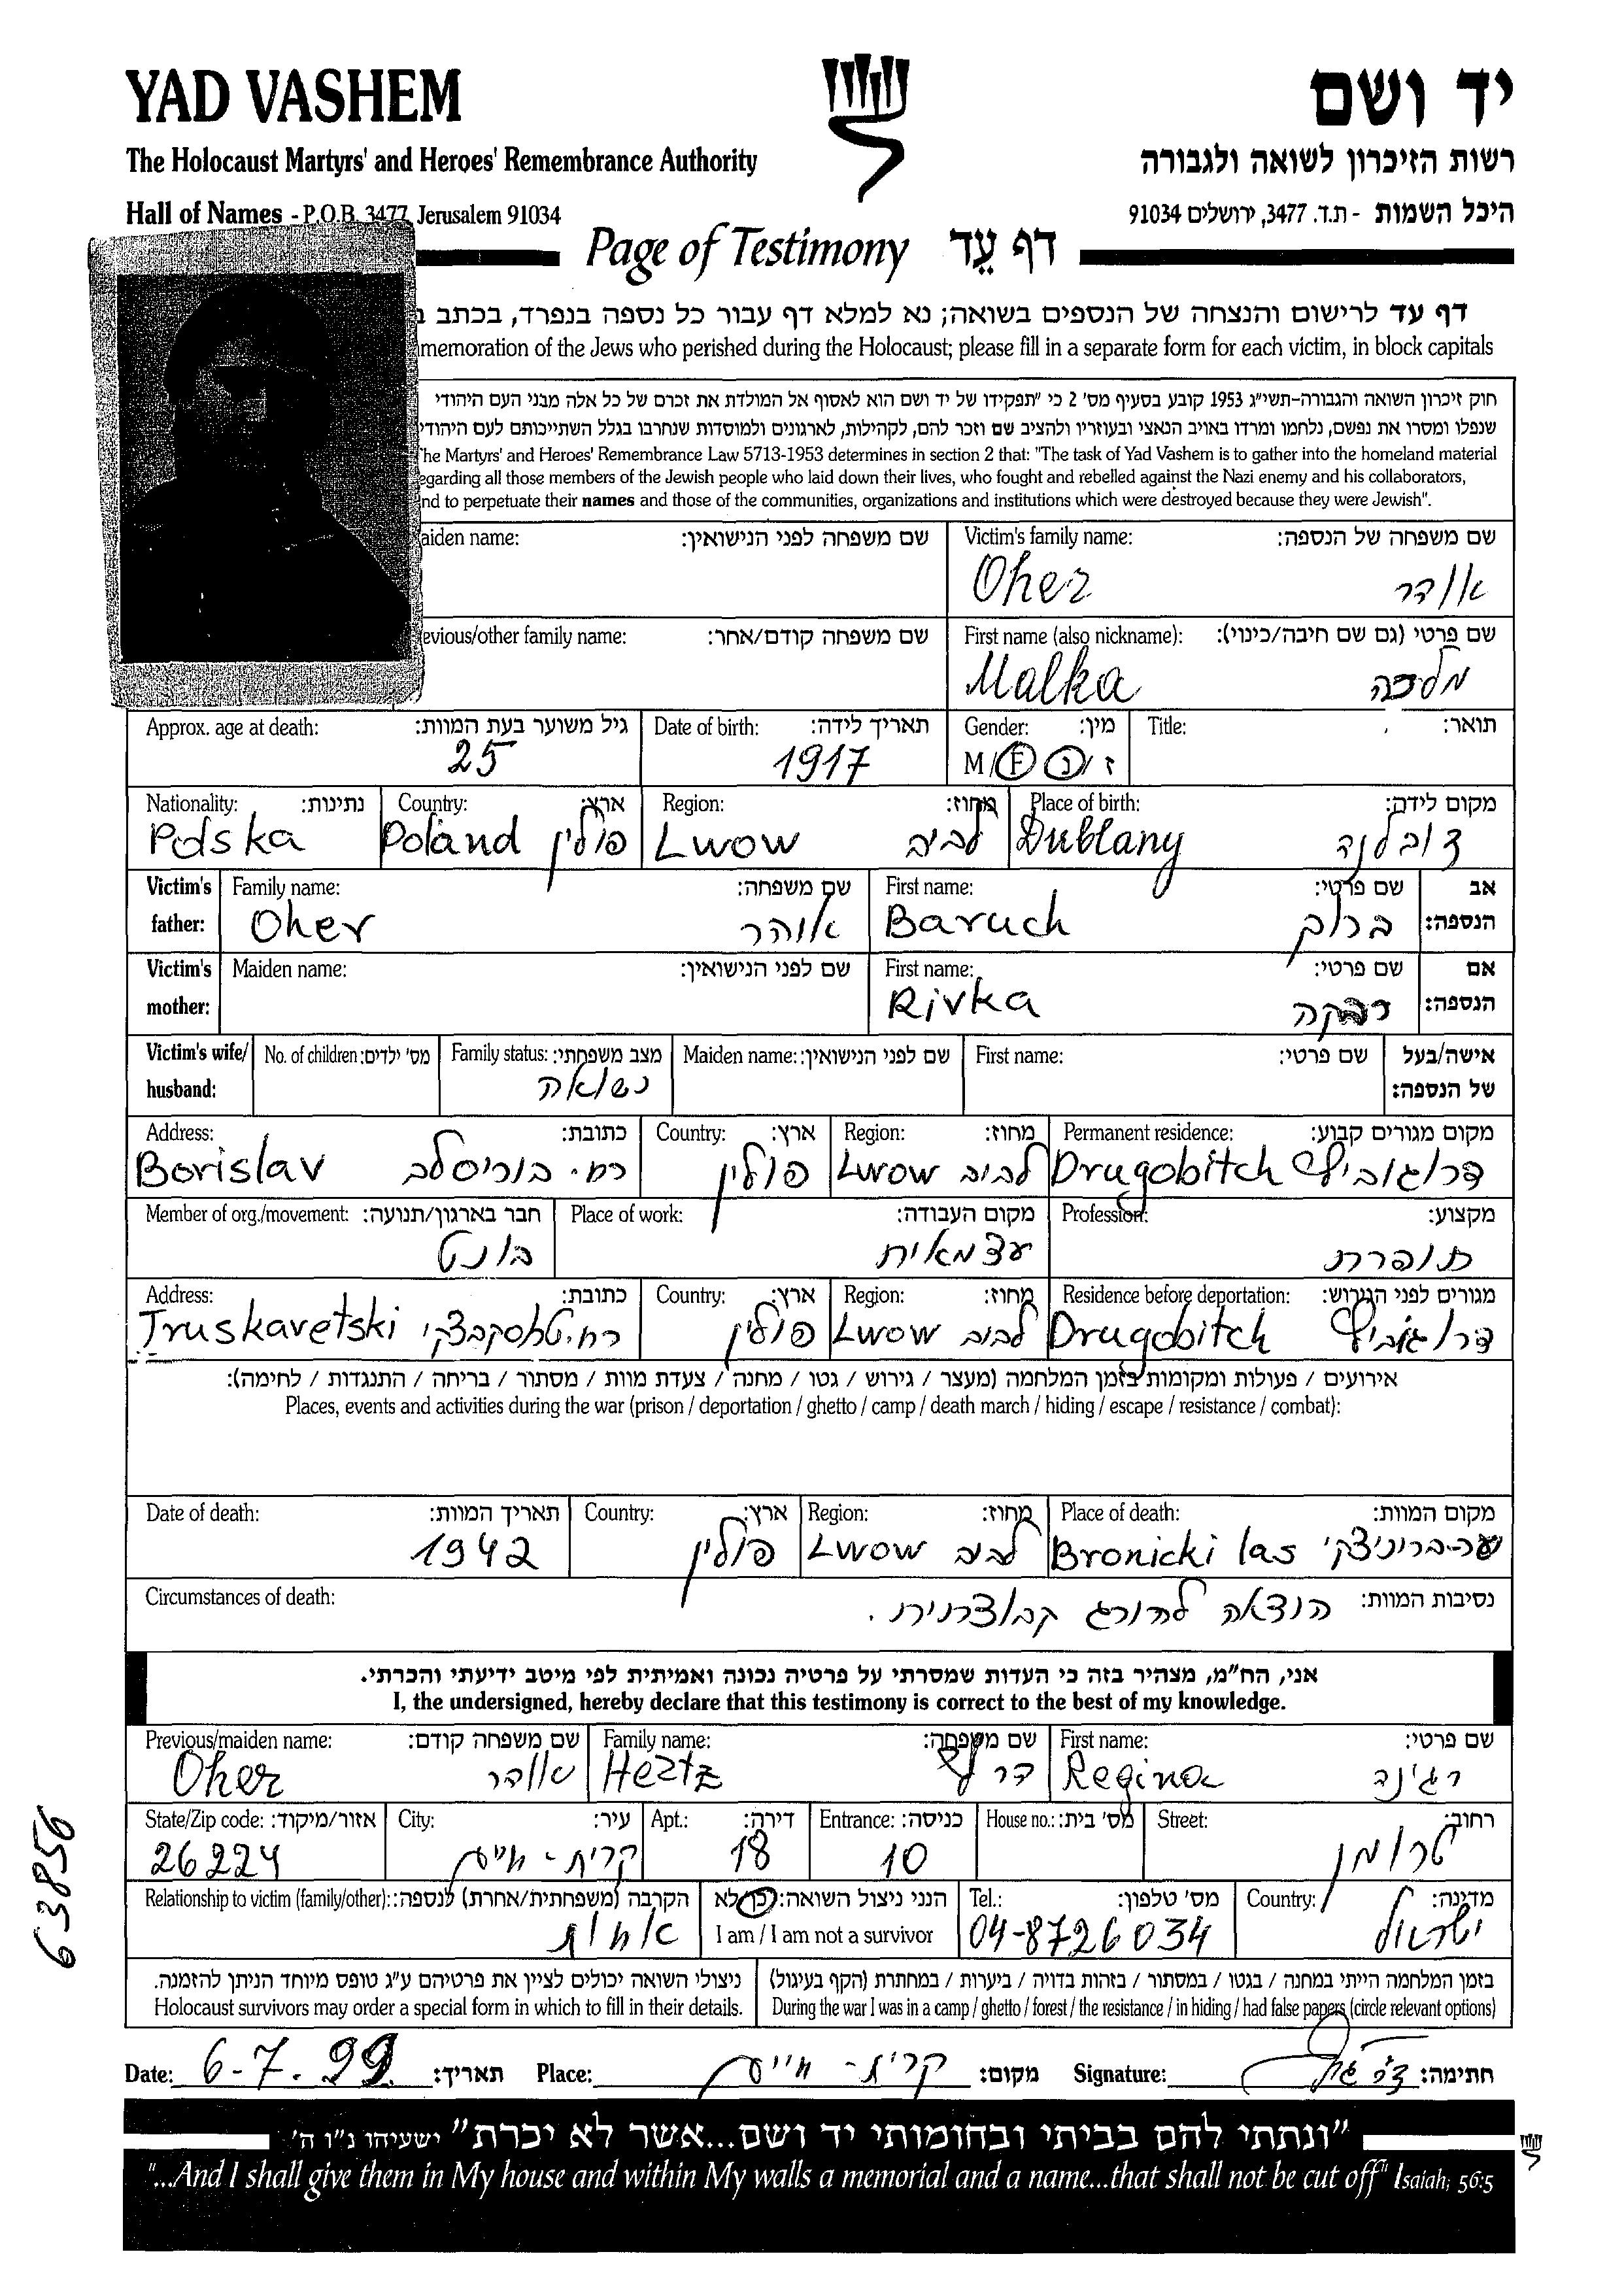 YAD VASHEM
יד ושם
The Holocaust Martyrs' and Heroes' Remembrance Authority
רשות הזיכרון לשואה ולגבורה
Hall of Names - P.O.B. 3477, Jerusalem 91034
היכל השמות - ת.ד. 3477, ירושלים 91034
Page of Testimony דף עֵד
דף עד לרישום והנצחה של הנספים בשואה; נא למלא דף עבור כל נספה בנפרד, בכתב
memoration of the Jews who perished during the Holocaust; please fill in a separate form for each victim, in block capitals
חוק זיכרון השואה והגבורה-תשי"ג 1953 קובע בסעיף מס' 2 כי "תפקידו של יד ושם הוא לאסוף אל המולדת את זכרם של כל אלה מבני העם היהודי
שנפלו ומסרו את נפשם, נלחמו ומרדו באויב הנאצי ובעוזריו ולהציב שם וזכר להם, לקהילות, לארגונים ולמוסדות שנחרבו בגלל השתייכותם לעם היהודי
he Martyrs' and Heroes' Remembrance Law 5713-1953 determines in section 2 that: "The task of Yad Vashem is to gather into the homeland material
egarding all those members of the Jewish people who laid down their lives, who fought and rebelled against the Nazi enemy and his collaborators,
nd to perpetuate their names and those of the communities, organizations and institutions which were destroyed because they were Jewish".
aiden name: שם משפחה לפני הנישואין: Victim's family name: שם משפחה של הנספה:
Oher אוהר
evious/other family name: שם משפחה קודם/אחר: First name (also nickname): שם פרטי (גם שם חיבה/כינוי):
Malka מלכה
Approx. age at death: גיל משוער בעת המוות: Date of birth: תאריך לידה: Gender: מין: Title: תואר:
25 1917 M/F ז/נ
Nationality: נתינות: Country: ארץ: Region: מחוז: Place of birth: מקום לידה:
Polska Poland פולין Lwow לביב Dublany דובלנה
Victim's father: Family name: שם משפחה: First name: שם פרטי: אב הנספה:
Oher אוהר Baruch ברוך
Victim's mother: Maiden name: שם לפני הנישואין: First name: שם פרטי: אם הנספה:
Rivka רבקה
Victim's wife/husband: No. of children: מס' ילדים: Family status: מצב משפחתי: Maiden name: שם לפני הנישואין: First name: שם פרטי: אישה/בעל של הנספה:
נשואה
Address: כתובת: Country: ארץ: Region: מחוז: Permanent residence: מקום מגורים קבוע:
Borislav רח. בוריסלב פולין Lwow לביב Drugobitch דרוגוביץ
Member of org./movement: חבר בארגון/תנועה: Place of work: מקום העבודה: Profession: מקצוע:
בונט עצמאית תופרת
Address: כתובת: Country: ארץ: Region: מחוז: Residence before deportation: מגורים לפני הגירוש:
Truskavetski פולין Lwow לביב Drugobitch דרוגוביץ
אירועים / פעולות ומקומות בזמן המלחמה (מעצר / גירוש / גטו / מחנה / צעדת מוות / מסתור / בריחה / התנגדות / לחימה):
Places, events and activities during the war (prison / deportation / ghetto / camp / death march / hiding / escape / resistance / combat):
Date of death: תאריך המוות: Country: ארץ: Region: מחוז: Place of death: מקום המוות:
1942 פולין Lwow לביב Bronicki las יער-ברוניצקי
Circumstances of death: נסיבות המוות:
הוצאה להורג קבוצתית.
אני, הח"מ, מצהיר בזה כי העדות שמסרתי על פרטיה נכונה ואמיתית לפי מיטב ידיעתי והכרתי.
I, the undersigned, hereby declare that this testimony is correct to the best of my knowledge.
Previous/maiden name: שם משפחה קודם: Family name: שם משפחה: First name: שם פרטי:
Oher אוהר Hertz הרץ Regina רגינה
State/Zip code: אזור/מיקוד: City: עיר: Apt.: דירה: Entrance: כניסה: House no.: מס' בית: Street: רחוב:
26224 קרית-חיים 18 10 טרומן
Relationship to victim (family/other): הקרבה (משפחתית/אחרת) לנספה: הנני ניצול השואה: כן/לא Tel.: מס' טלפון: Country: מדינה:
אחות I am / I am not a survivor 04-8726034 ישראל
ניצולי השואה יכולים לציין את פרטיהם ע"ג טופס מיוחד הניתן להזמנה.
Holocaust survivors may order a special form in which to fill in their details.
בזמן המלחמה הייתי במחנה / בגטו / במסתור / בזהות בדויה / ביערות / במחתרת (הקף בעיגול)
During the war I was in a camp / ghetto / forest / the resistance / in hiding / had false papers (circle relevant options)
Date: 6-7.99 תאריך: Place: קרית-חיים מקום: Signature: חתימה:
"ונתתי להם בביתי ובחומותי יד ושם...אשר לא יכרת" ישעיהו נ"ו ה'
"...And I shall give them in My house and within My walls a memorial and a name...that shall not be cut off" Isaiah; 56:5
63856